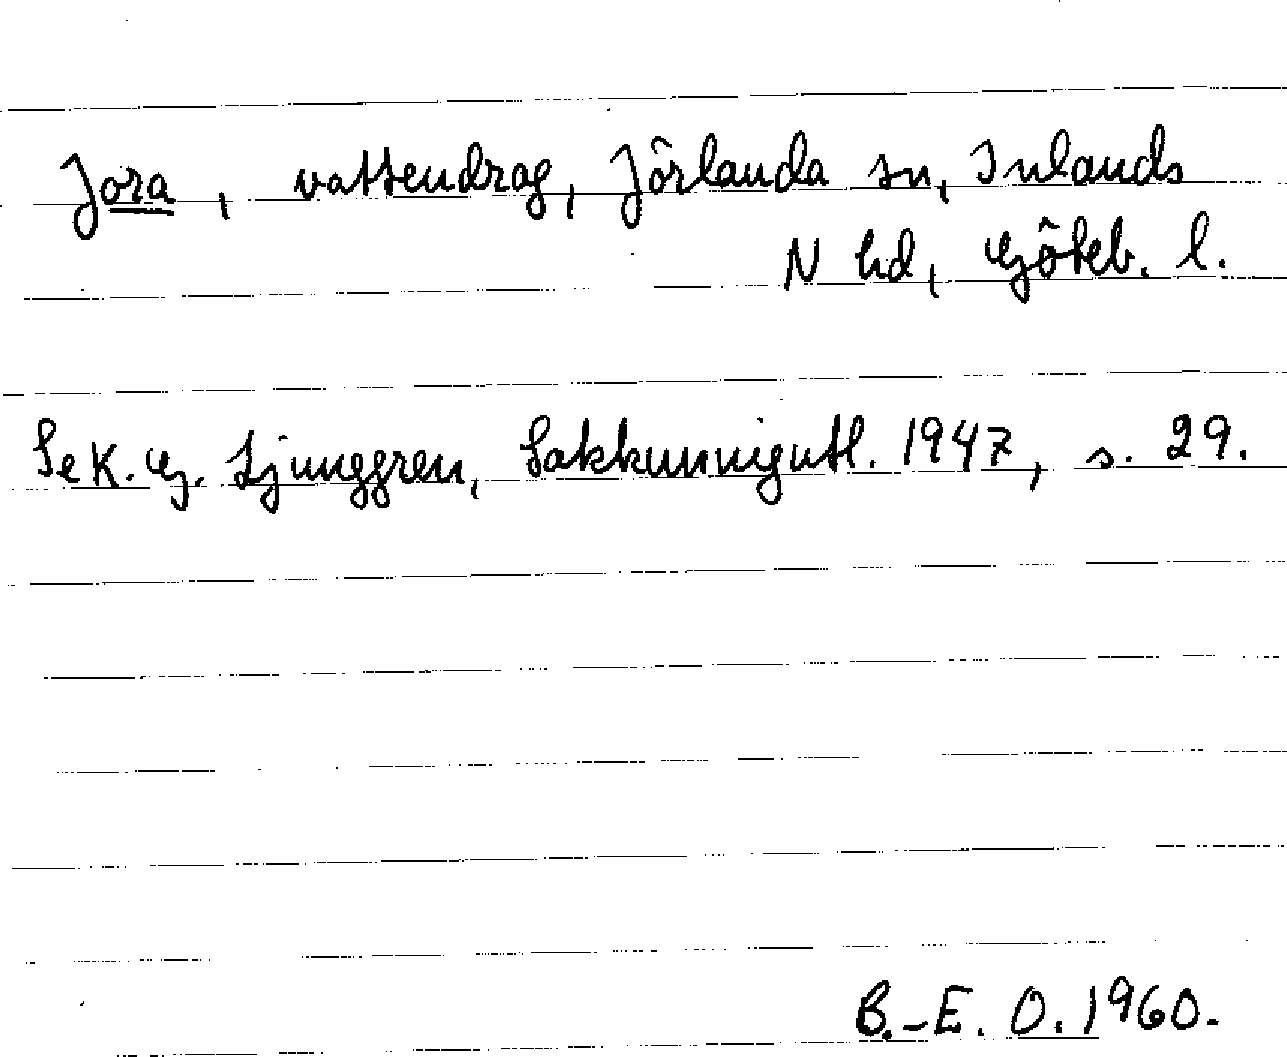 Jora, vattendrag, Jörlanda sn, Inlands
N hd, Göteb. l.
Se K. G. Ljunggren, Sakkunnigutl. 1947, s. 29.
B.-E. O. 1960.